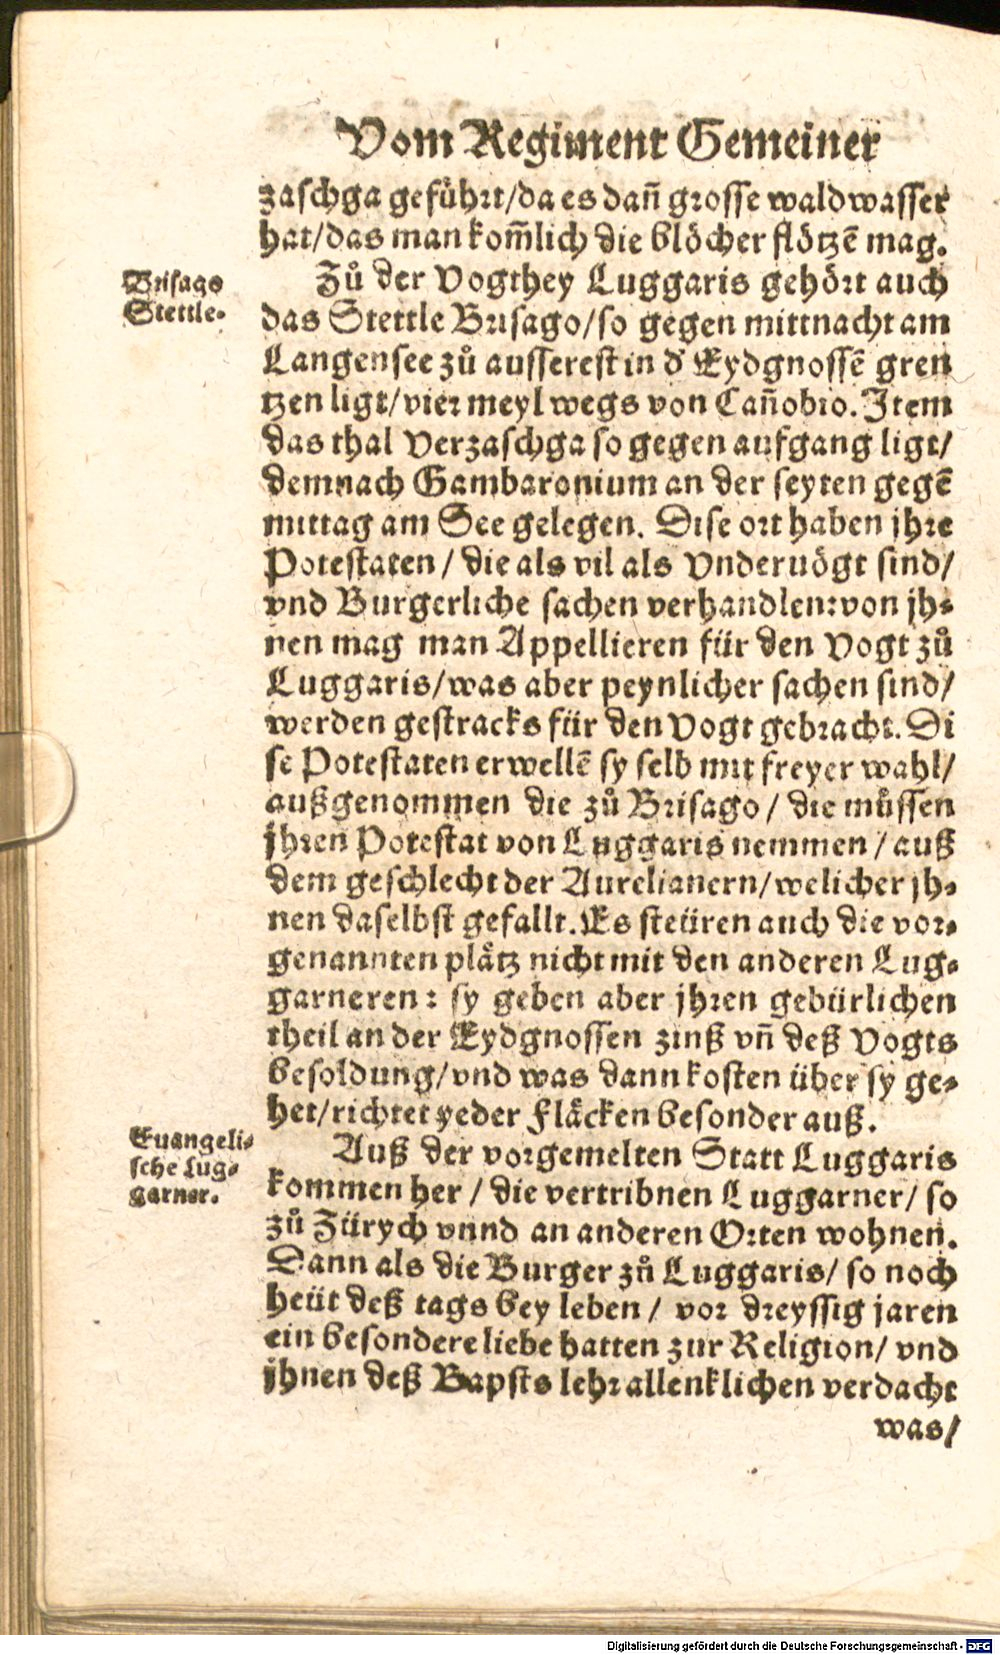 Vom Regiment Gemeiner
zaschga geführt/da es dañ grosse waldwasser
hat/das man kom̃lich die blöcher flötzē mag.
Brisago
Stettle.
Zů der Vogthey Luggaris gehört auch
das Stettle Brisago/so gegen mittnacht am
Langensee zů ausserest in d' Eydgnossē gren
tzen ligt/vier meyl wegs von Cañobio. Item
das thal Verzaschga so gegen aufgang ligt/
demnach Gambaronium an der seyten gegē
mittag am See gelegen. Dise ort haben jhre
Potestaten/ die als vil als Vnderuögt sind/
vnd Burgerliche sachen verhandlen: von jh-
nen mag man Appellieren für den Vogt zů
Luggaris/was aber peynlicher sachen sind/
werden gestracks für den Vogt gebracht. Di
se Potestaten erwellē sy selb mit freyer wahl/
außgenommen die zů Brisago/ die müssen
jhren Potestat von Luggaris nemmen/auß
dem geschlecht der Aurelianern/welicher jh-
nen daselbst gefallt. Es steüren auch die vor-
genannten plätz nicht mit den anderen Lug-
garneren: sy geben aber jhren gebürlichen
theil an der Eydgnossen zinß vñ deß Vogts
besoldung/vnd was dann kosten über sy ge-
het/richtet yeder Fläcken besonder auß.
Euangeli-
sche Lug-
garner.
Auß der vorgemelten Statt Luggaris
kommen her/ die vertribnen Luggarner/ so
zů Zürych vnnd an anderen Orten wohnen.
Dann als die Burger zů Luggaris/ so noch
heüt deß tags bey leben/ vor dreyssig jaren
ein besondere liebe hatten zur Religion/ vnd
jhnen deß Bapsts lehr allenklichen verdacht
was/
Digitalisierung gefördert durch die Deutsche Forschungsgemeinschaft - DFG